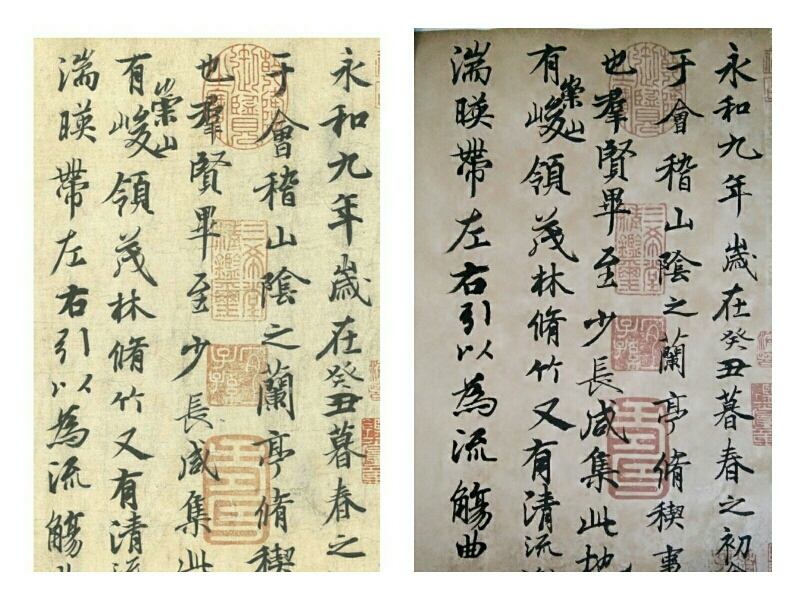 永和九年歲在癸丑暮春之
于會稽山陰之蘭亭脩稧
也羣賢畢至少長咸集此
有崇山峻領茂林脩竹又有清流
湍暎帶左右引以為流觴
三希堂精鑑璽
宜子孫
永和九年歲在癸丑暮春之初
于會稽山陰之蘭亭脩稧事
也羣賢畢至少長咸集此地
有崇山峻領茂林脩竹又有清流
湍暎帶左右引以為流觴曲
三希堂精鑑璽
宜子孫